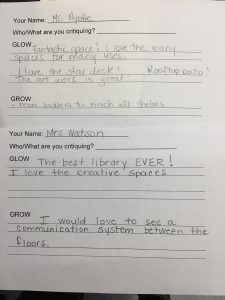 Your Name: Ms. Ayotte
Who/What are you critiquing?
GLOW Fantastic space! I love the many
spaces for many uses.
I love the star deck! Rooftop patio!
The art work is great!
GROW
- more ladders to reach all shelves
Your Name: Mrs Watson
Who/What are you critiquing?
GLOW The best library EVER!
I love the creative spaces
GROW
I would love to see a
communication system between the
floors.